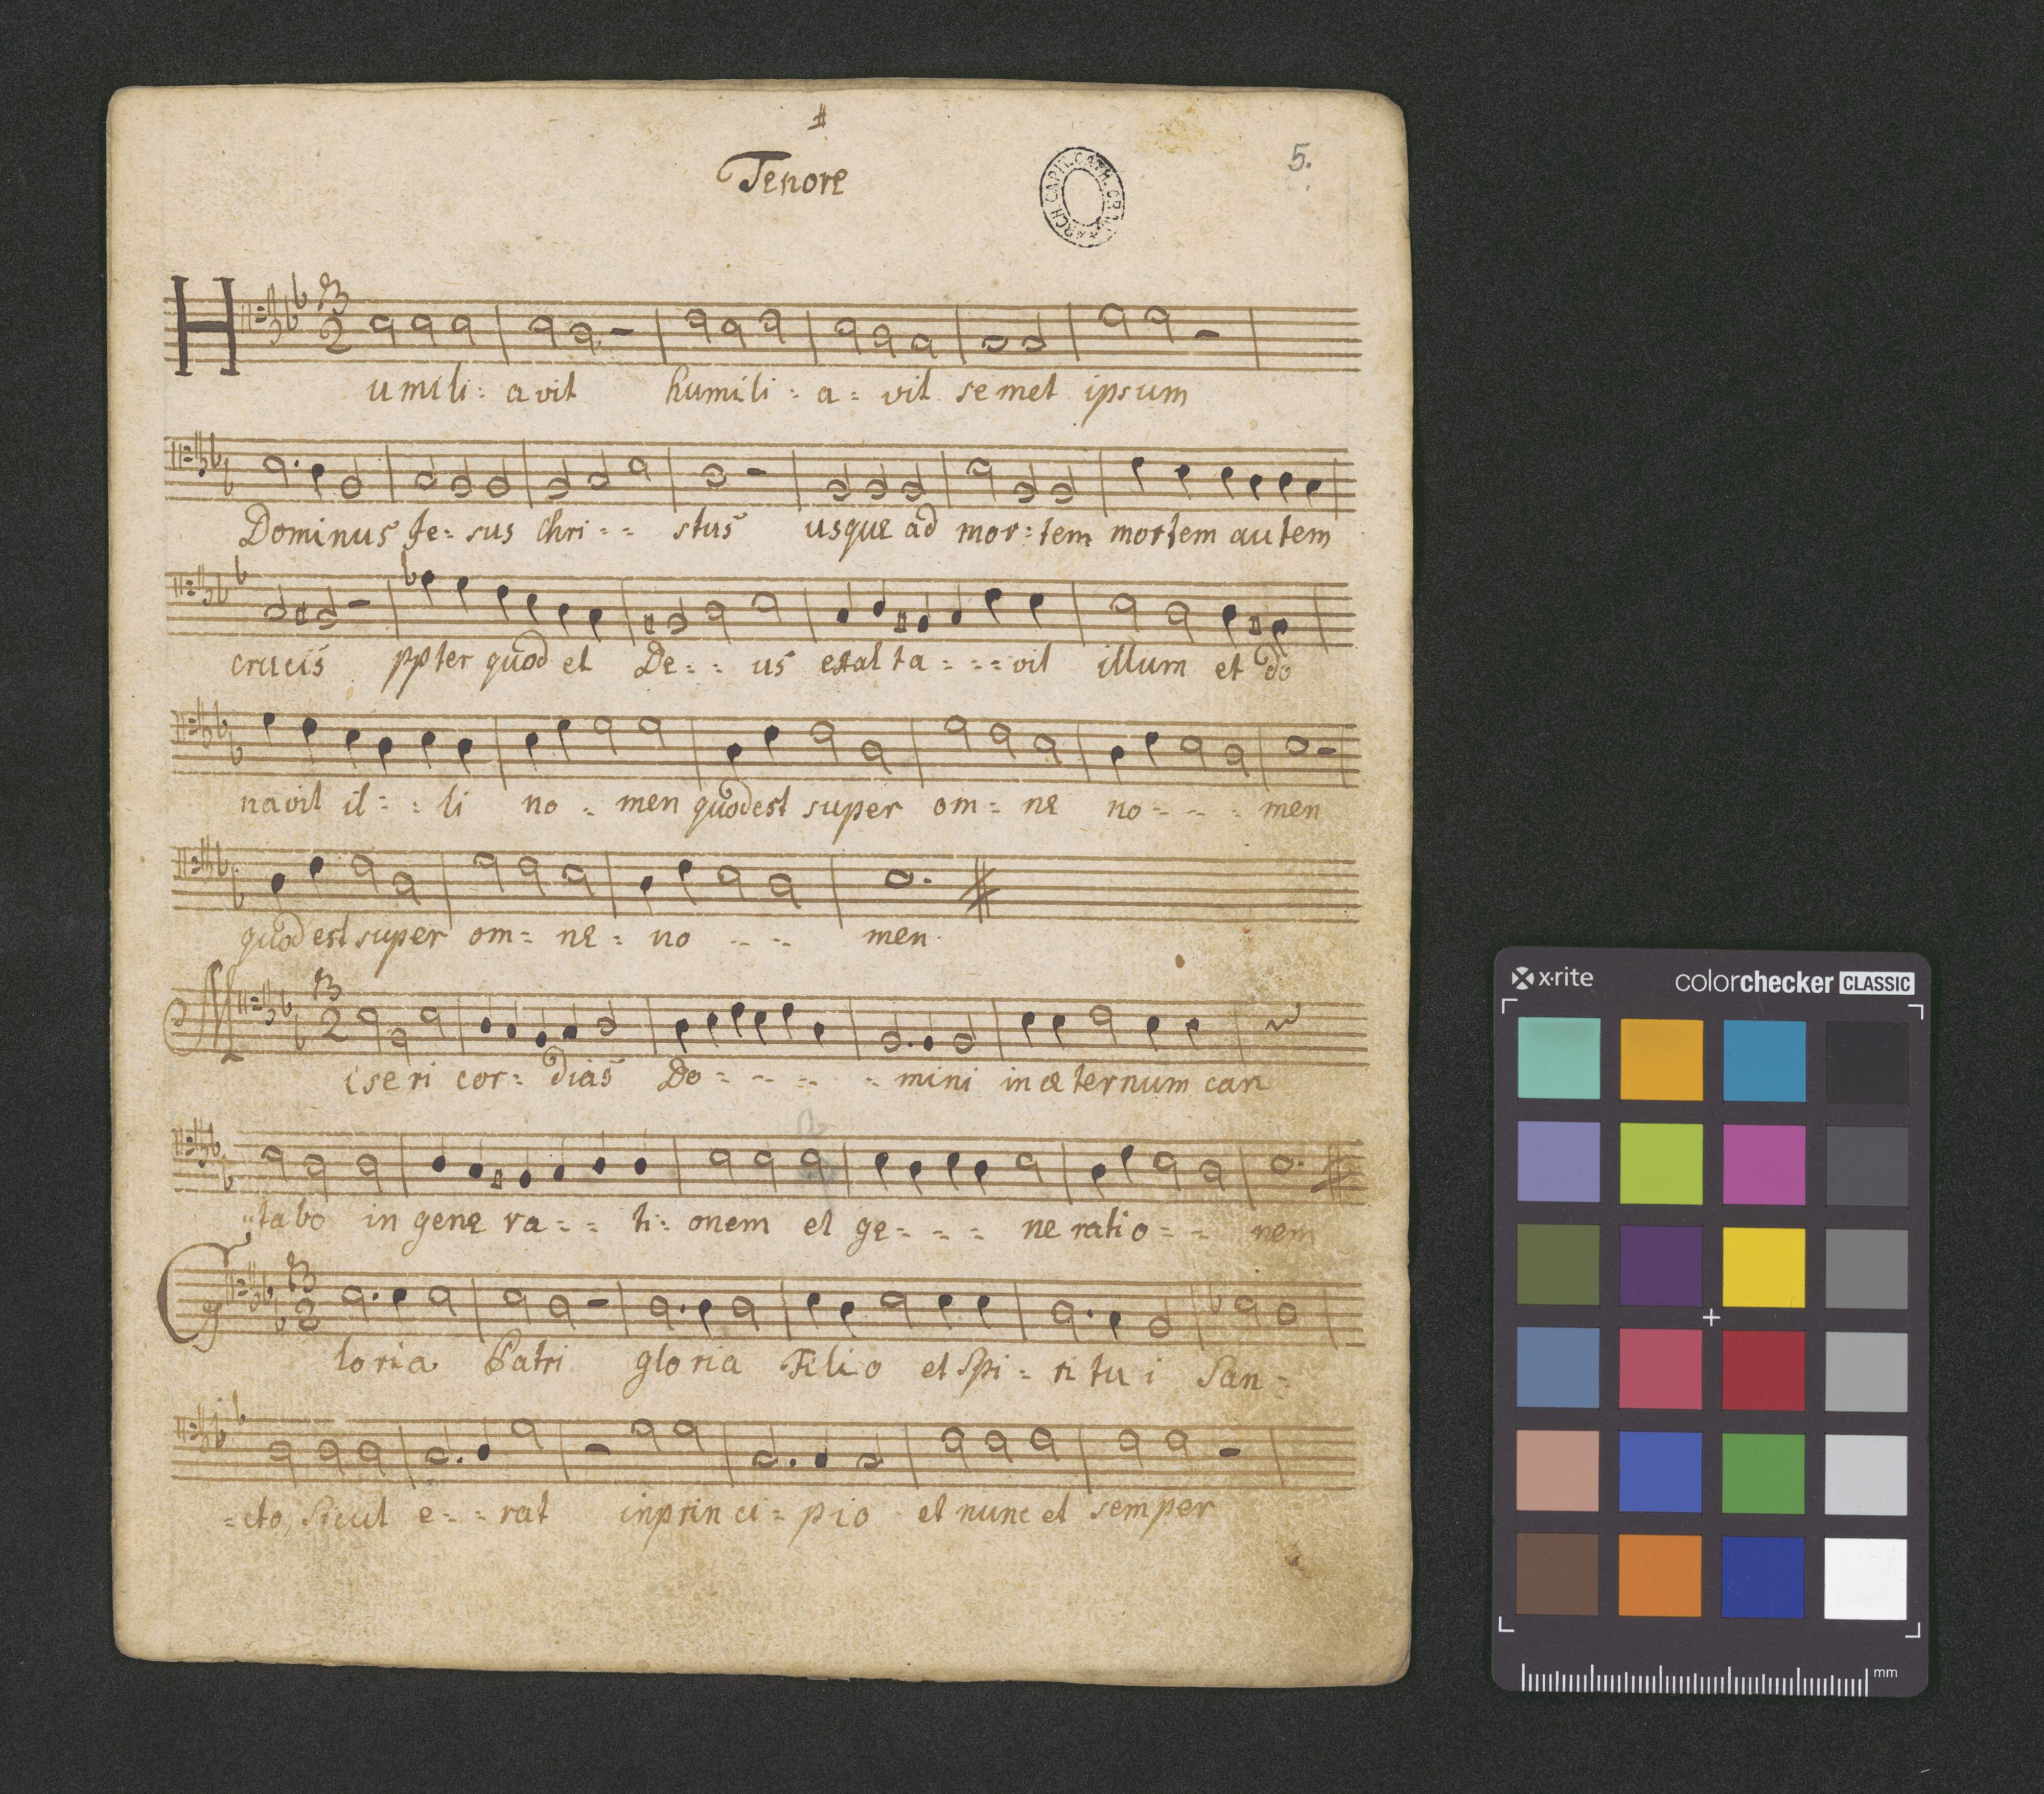 Tenore
ARCH. CAPIT. CATH.
5.
3
2
Humili: avit humili: a: vit semet ipsum
Dominus Je: sus Chri: : stus usque ad mor: tem mortem autem
crucis ppter quod et De: : us exalta: : : vit illum et do
navit il: : li no : men quod est super om: ne no: : : men
quod est super om: ne: no : : men
3
2
Miseri cor: dias Do: : : : mini in æternum can
:tabo in gene ra: : ti: onem et ge: : : ne ratio: : nem
3
2
Gloria Patri gloria Filio et Spi: ri tu i San:
:cto, Sicut e: : rat in prin ci: pio et nunc et semper
x-rite colorchecker CLASSIC
mm